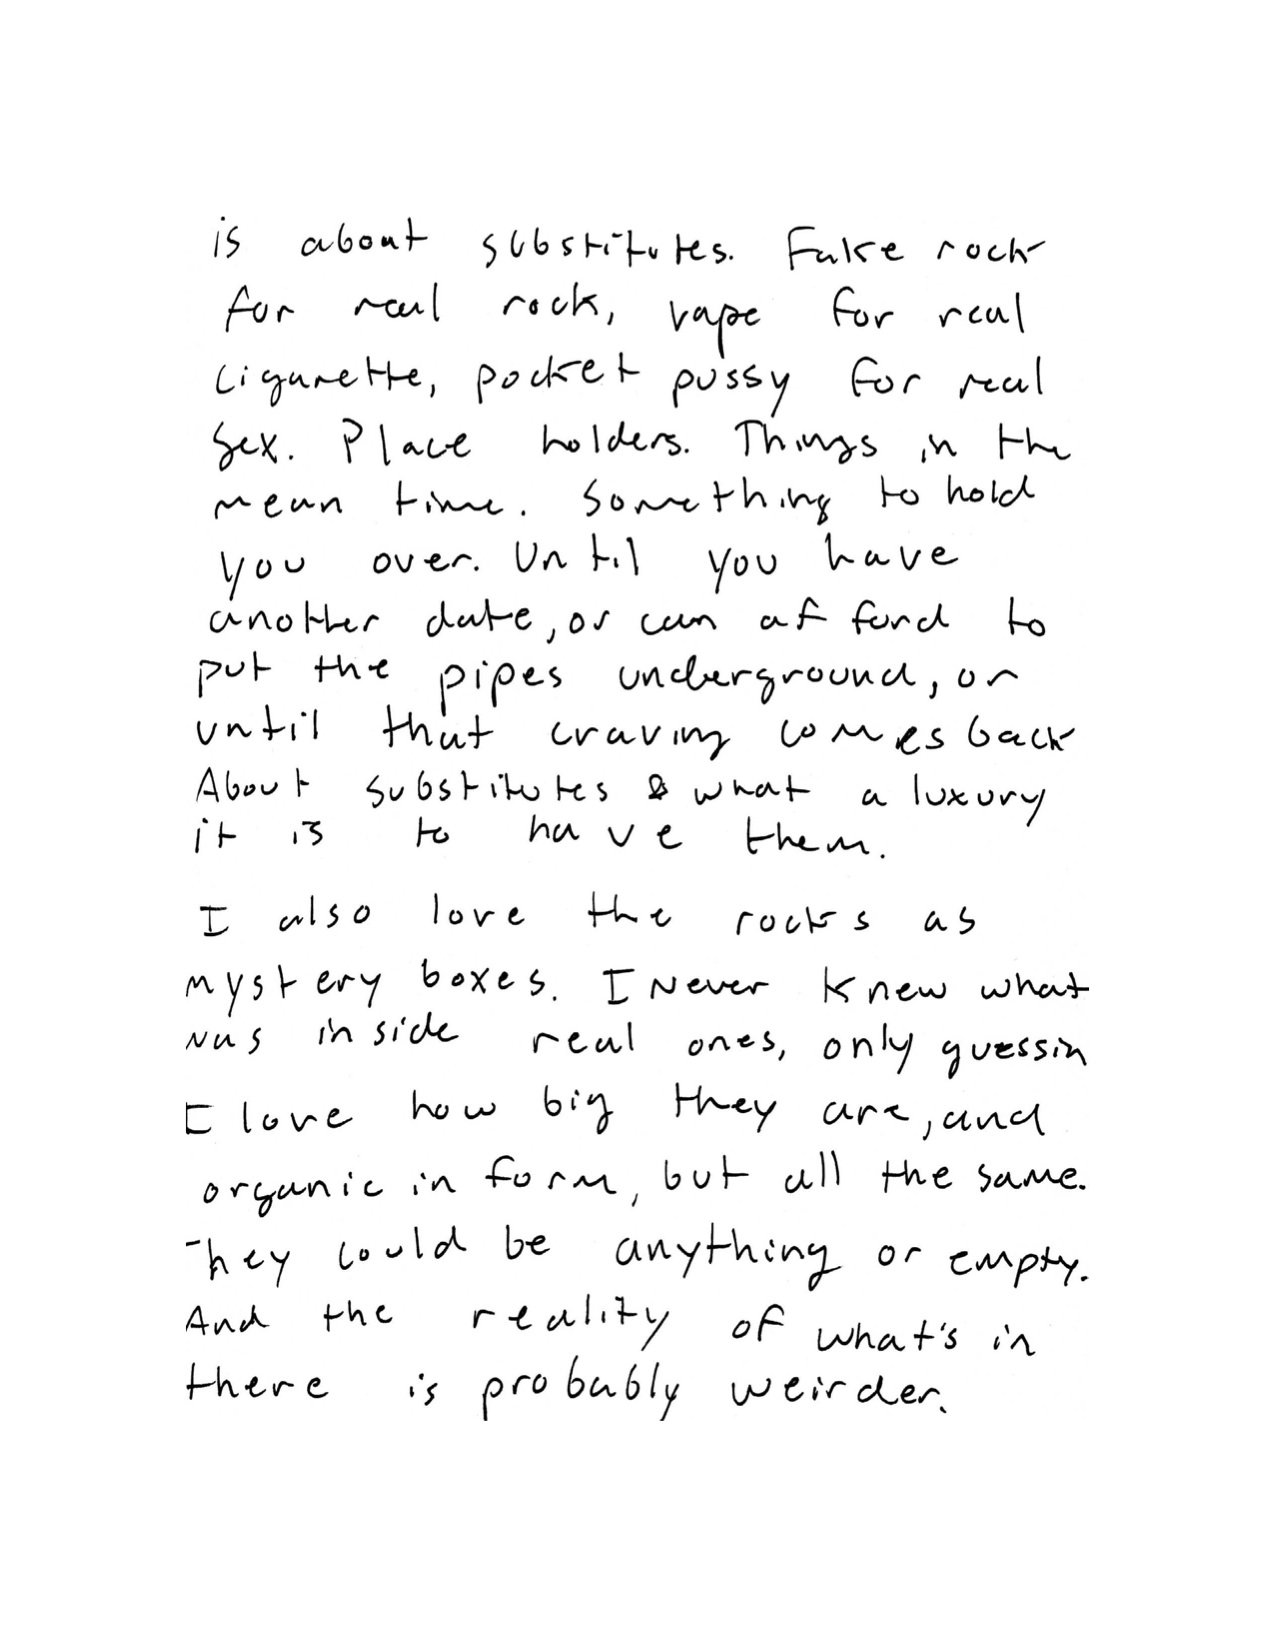 is about substitutes. Fake rock
for real rock, vape for real
cigarette, pocket pussy for real
sex. Place holders. Things in the
mean time. Something to hold
you over. Until you have
another date, or can afford to
put the pipes underground, or
until that craving comes back
About substitutes & what a luxury
it is to have them.
I also love the rocks as
mystery boxes. I never knew what
was inside real ones, only guessin
I love how big they are, and
organic in form, but all the same.
They could be anything or empty.
And the reality of what's in
there is probably weirder.